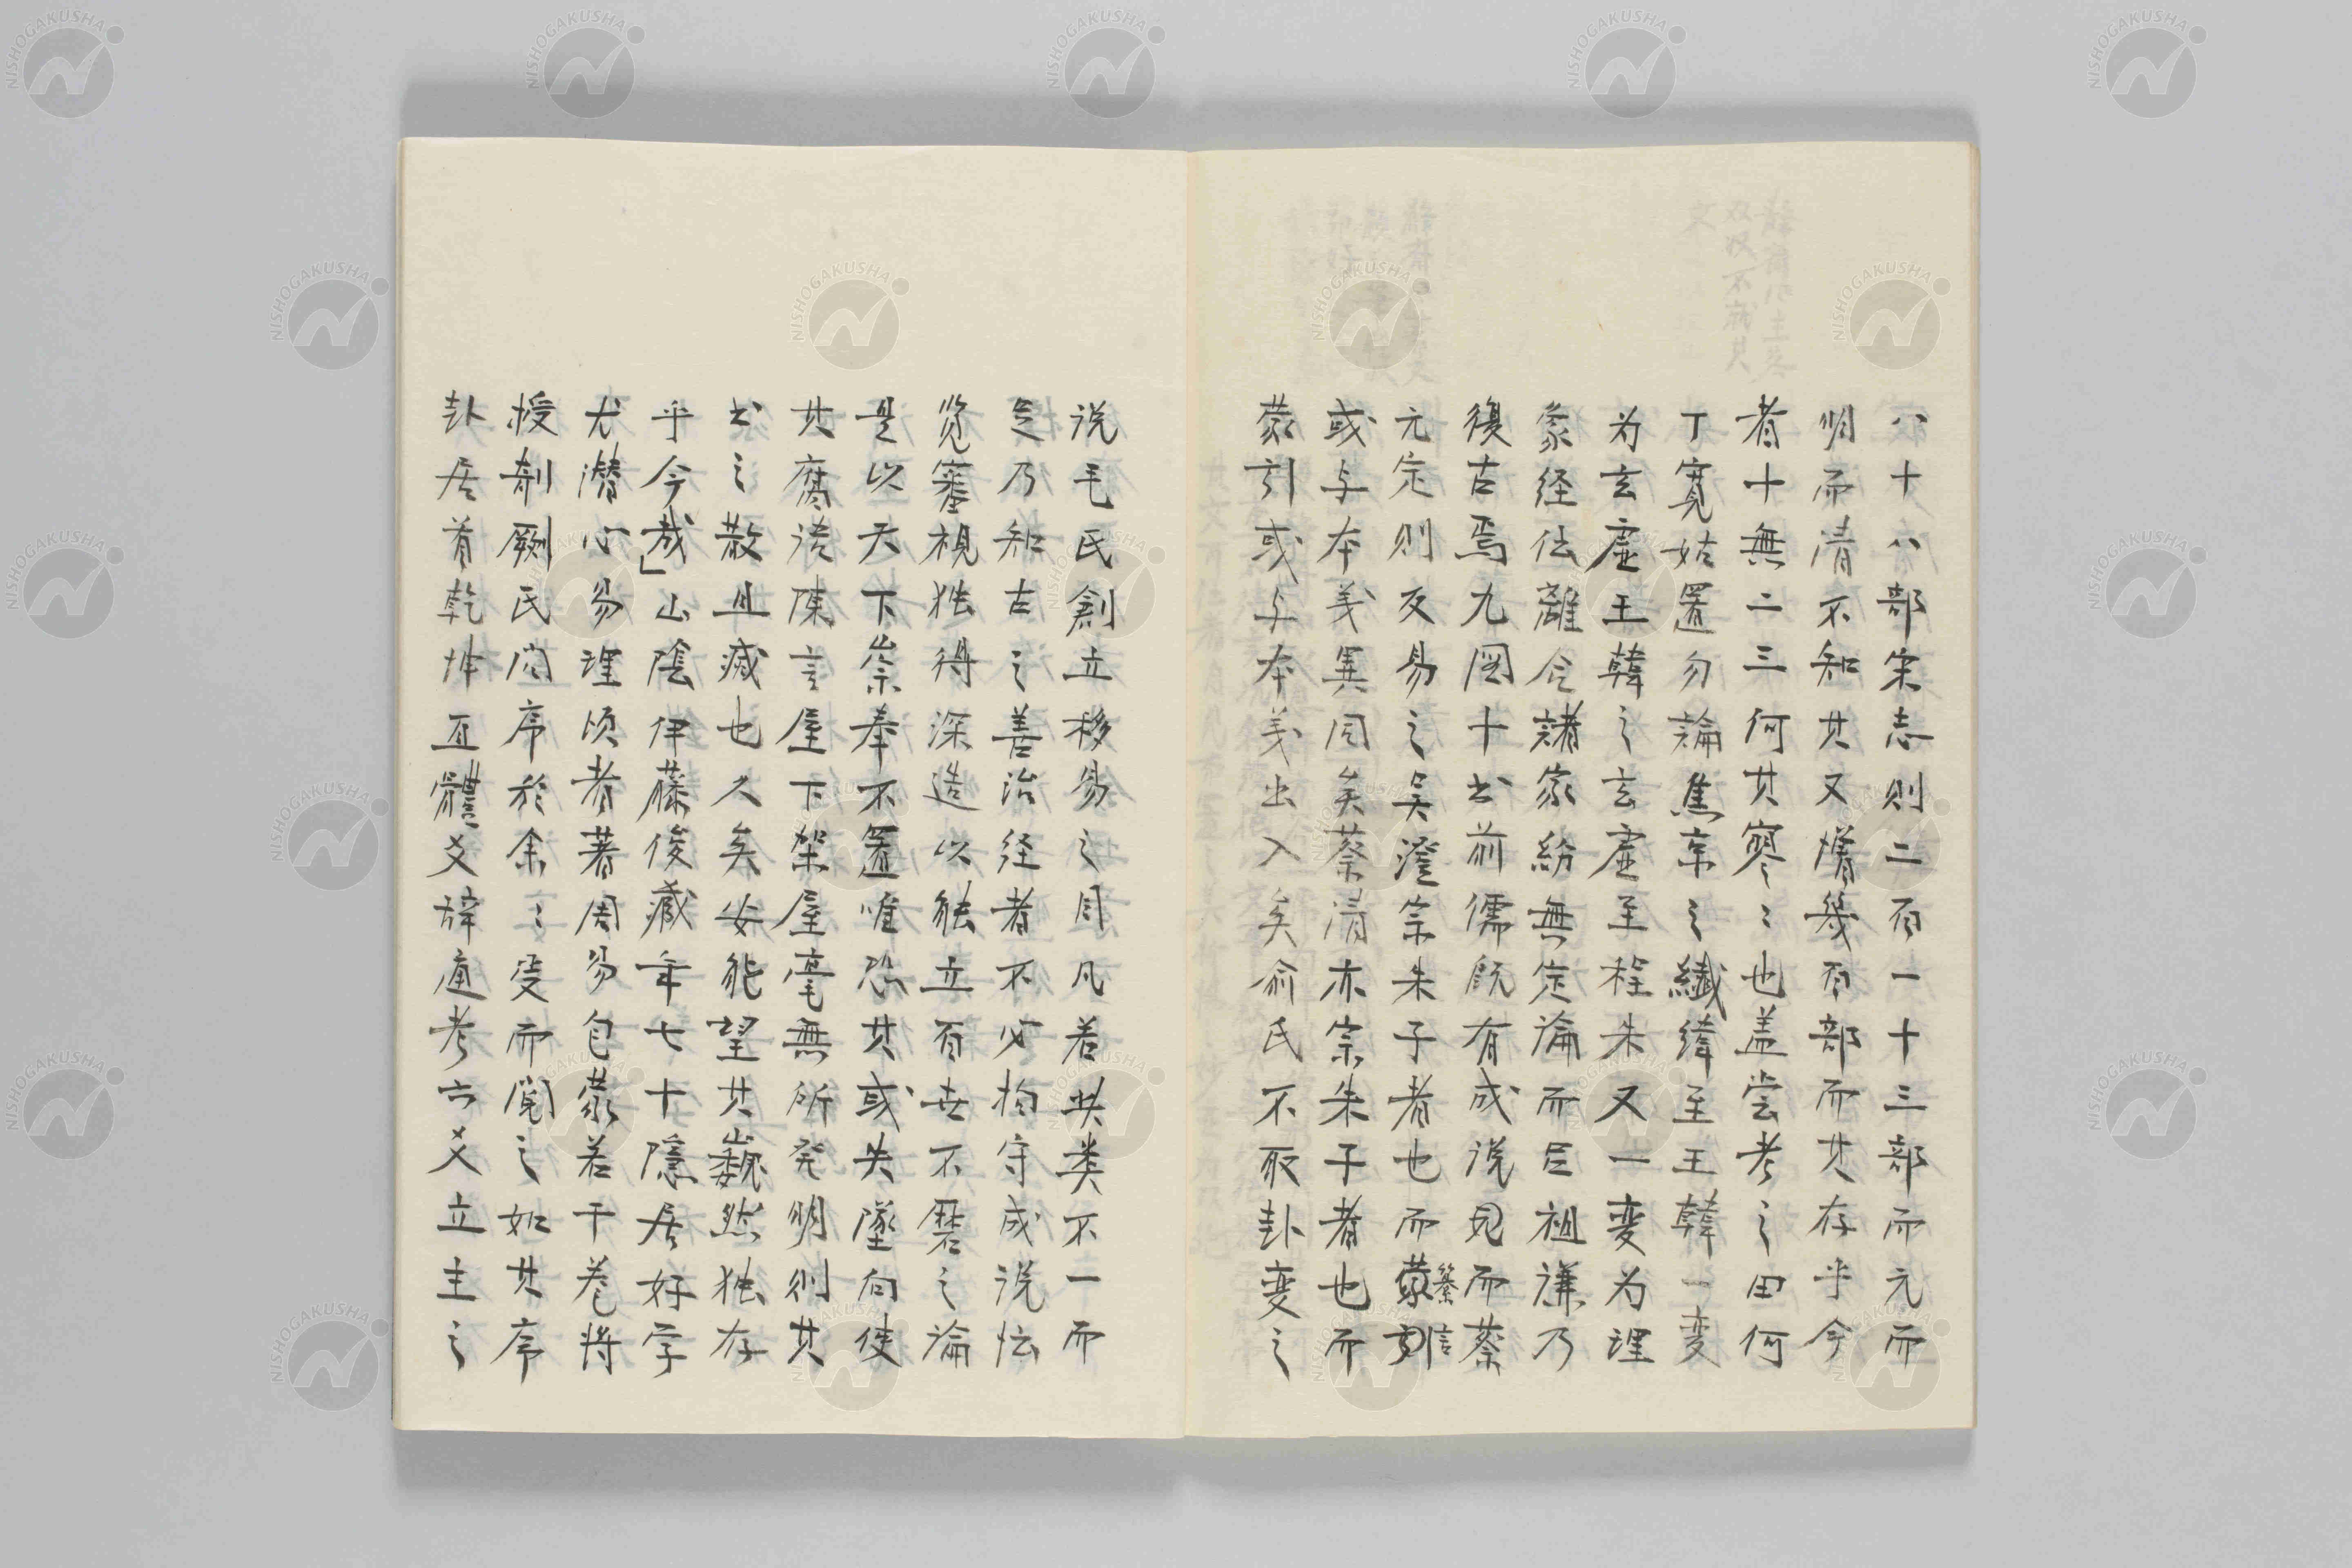 八十八部宋志則二百一十三部而元而
明而清不知其又隋幾百部而其存乎今
者十無二三何其寥〻也盖尝考之田何
丁寛姑置勿論焦京之纎緯至王韓一变
为玄虚王韓之玄虚至程朱又一変为理
象経伝離合諸家紛無定論而呂祖謙乃
復古焉九図十书前儒既有成説見而蔡
元定則交易之吴澄宗朱子者也而纂言
或与本義異同矣蔡清亦宗朱子者也而
蒙引或与本義出入矣俞氏不取卦変之
説毛氏創立移易之目凡若此类不一而
足乃知古之善治経者不必拘守成说怯
览審視独得深造以能立百世不磨之論
是以天下崇奉不置唯恐其或失墜向使
其腐談陳言屋下架屋毫無所発明則其
书之散且滅也久矣安能望其巍然独存
乎今哉」山陰伊藤俊蔵年七十隠居好学
尤潜心易理頃者著周易包蒙若干巻将
授剞劂氏问序於余〻受而閲之如其序
卦居首乾坤互體爻辞通考六爻立主之
NISHOGAKUSHA